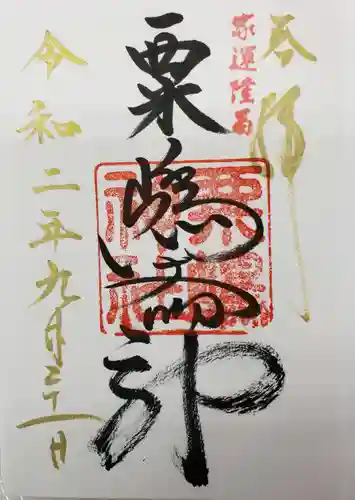 奉拝
家運隆昌
粟嶋神
粟嶋神社
令和二年九月二十一日